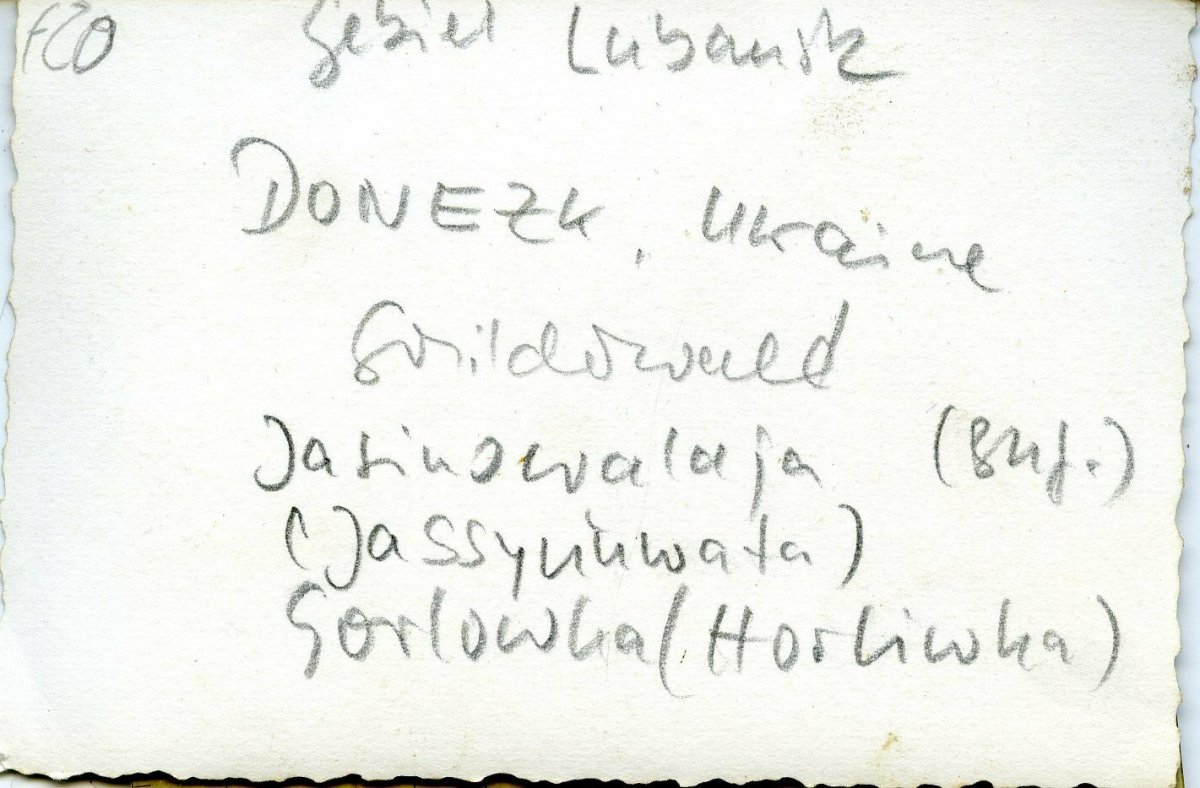 F20
Gebiet Lubansk
DONEZK, Ukraine
Jasinowataja (Bhf.)
(Jassynuwata)
Gorlowka (Horliwka)